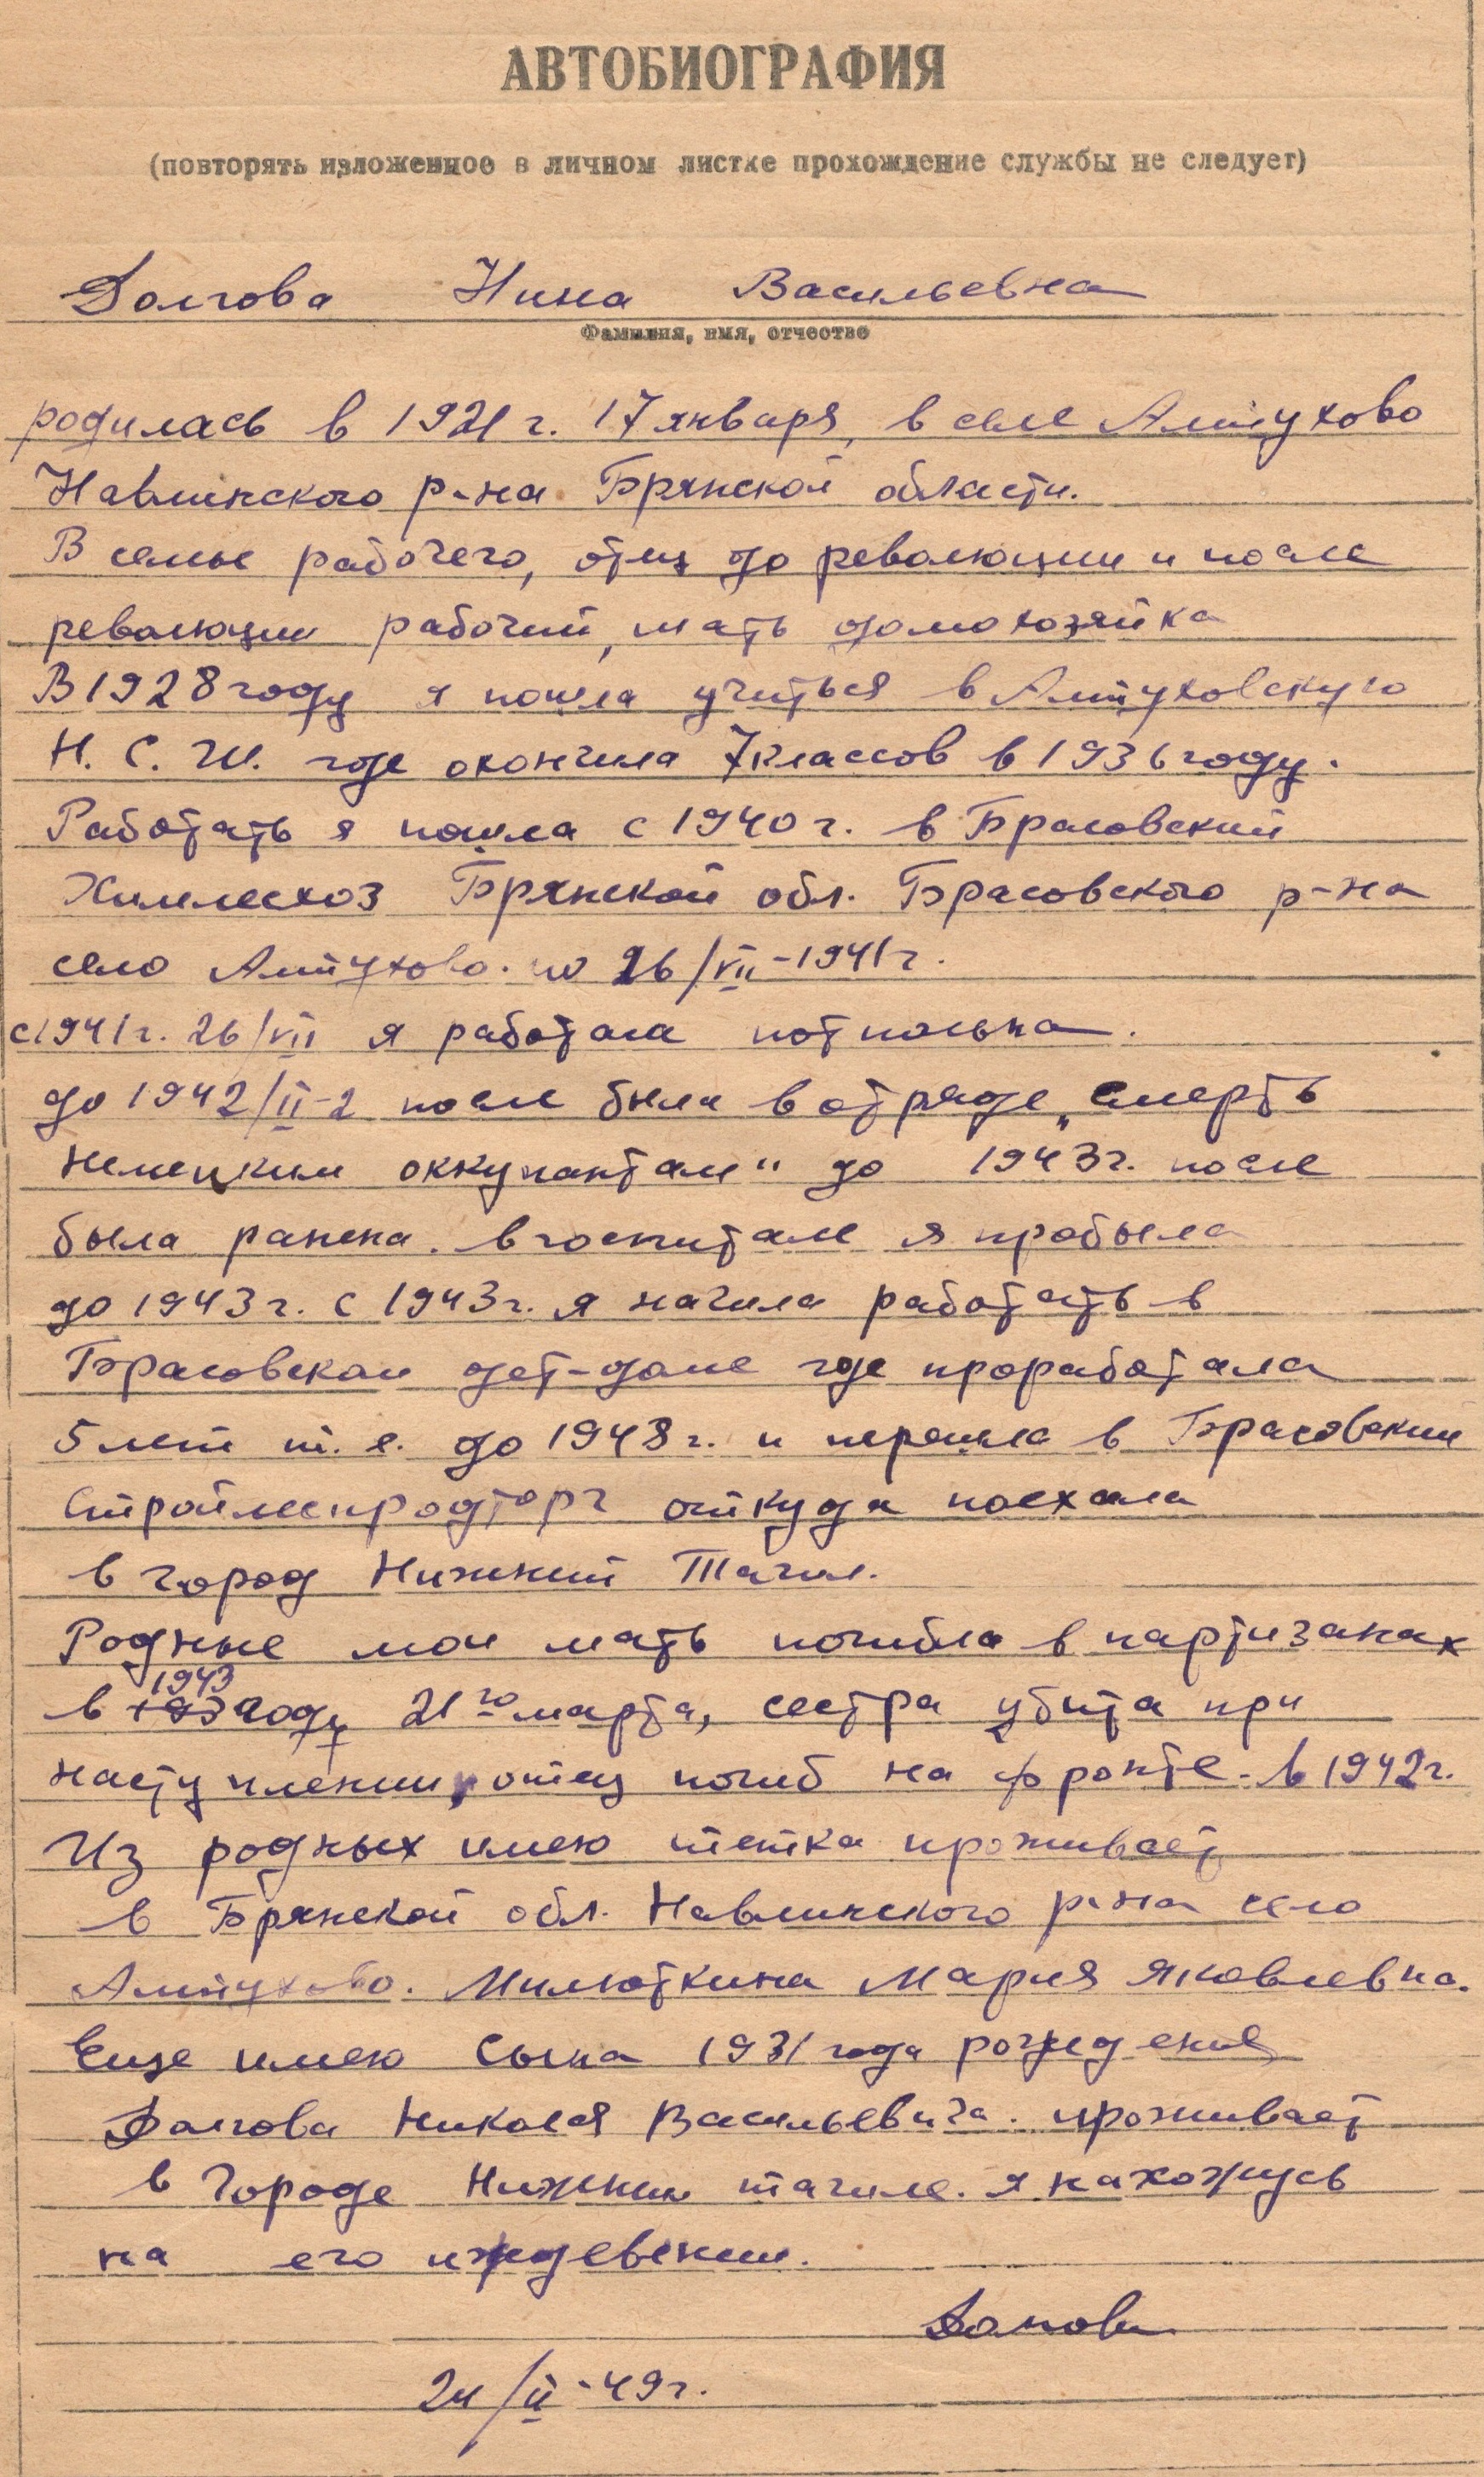 АВТОБИОГРАФИЯ
(повторять изложенное в личном листке прохождение службы не следует)
Долгова Нина Васильевна
Фамилия, имя, отчество
родилась в 1921 г. 17 января, в селе Алтухово
Навлинского р-на Брянской области.
В семье рабочего, отец до революции и после
революции рабочий, мать домохозяйка
В 1928 году я пошла учиться в Алтуховскую
Н. С. Ш. где окончила 7 классов в 1936 году.
Работать я пошла с 1940 г. в Брасовский
Химлесхоз Брянской обл. Брасовского р-на
село Алтухово. по 26/VII-1941 г.
с 1941 г. 26/VII я работала потпольна.
до 1942/II-2 после была в отряде „Смерть
немецким оккупантам" до 1943 г. после
была ранена. в госпитале я пробыла
до 1943 г. с 1943 г. я начила работать в
Брасовском дет-доме где проработала
5 лет т. е. до 1948 г. и перешла в Брасовский
Стройлеспродторг откуда поехала
в город Нижний Тагил.
Родные мои мать погибла в партизанах
1943
в году 21го марта, сестра убита при
наступлении, отец погиб на фронте. в 1942 г.
Из родных имею тетка проживает
в Брянской обл. Навлинского р-на село
Алтухово. Милюткина Мария Яковлевна.
Еще имею сына 1931 года рождения
Долгова Николая Васильевича. проживает
в городе Нижнем тагиле. я нахожусь
на его иждевении.
Долгова
24/II-49 г.